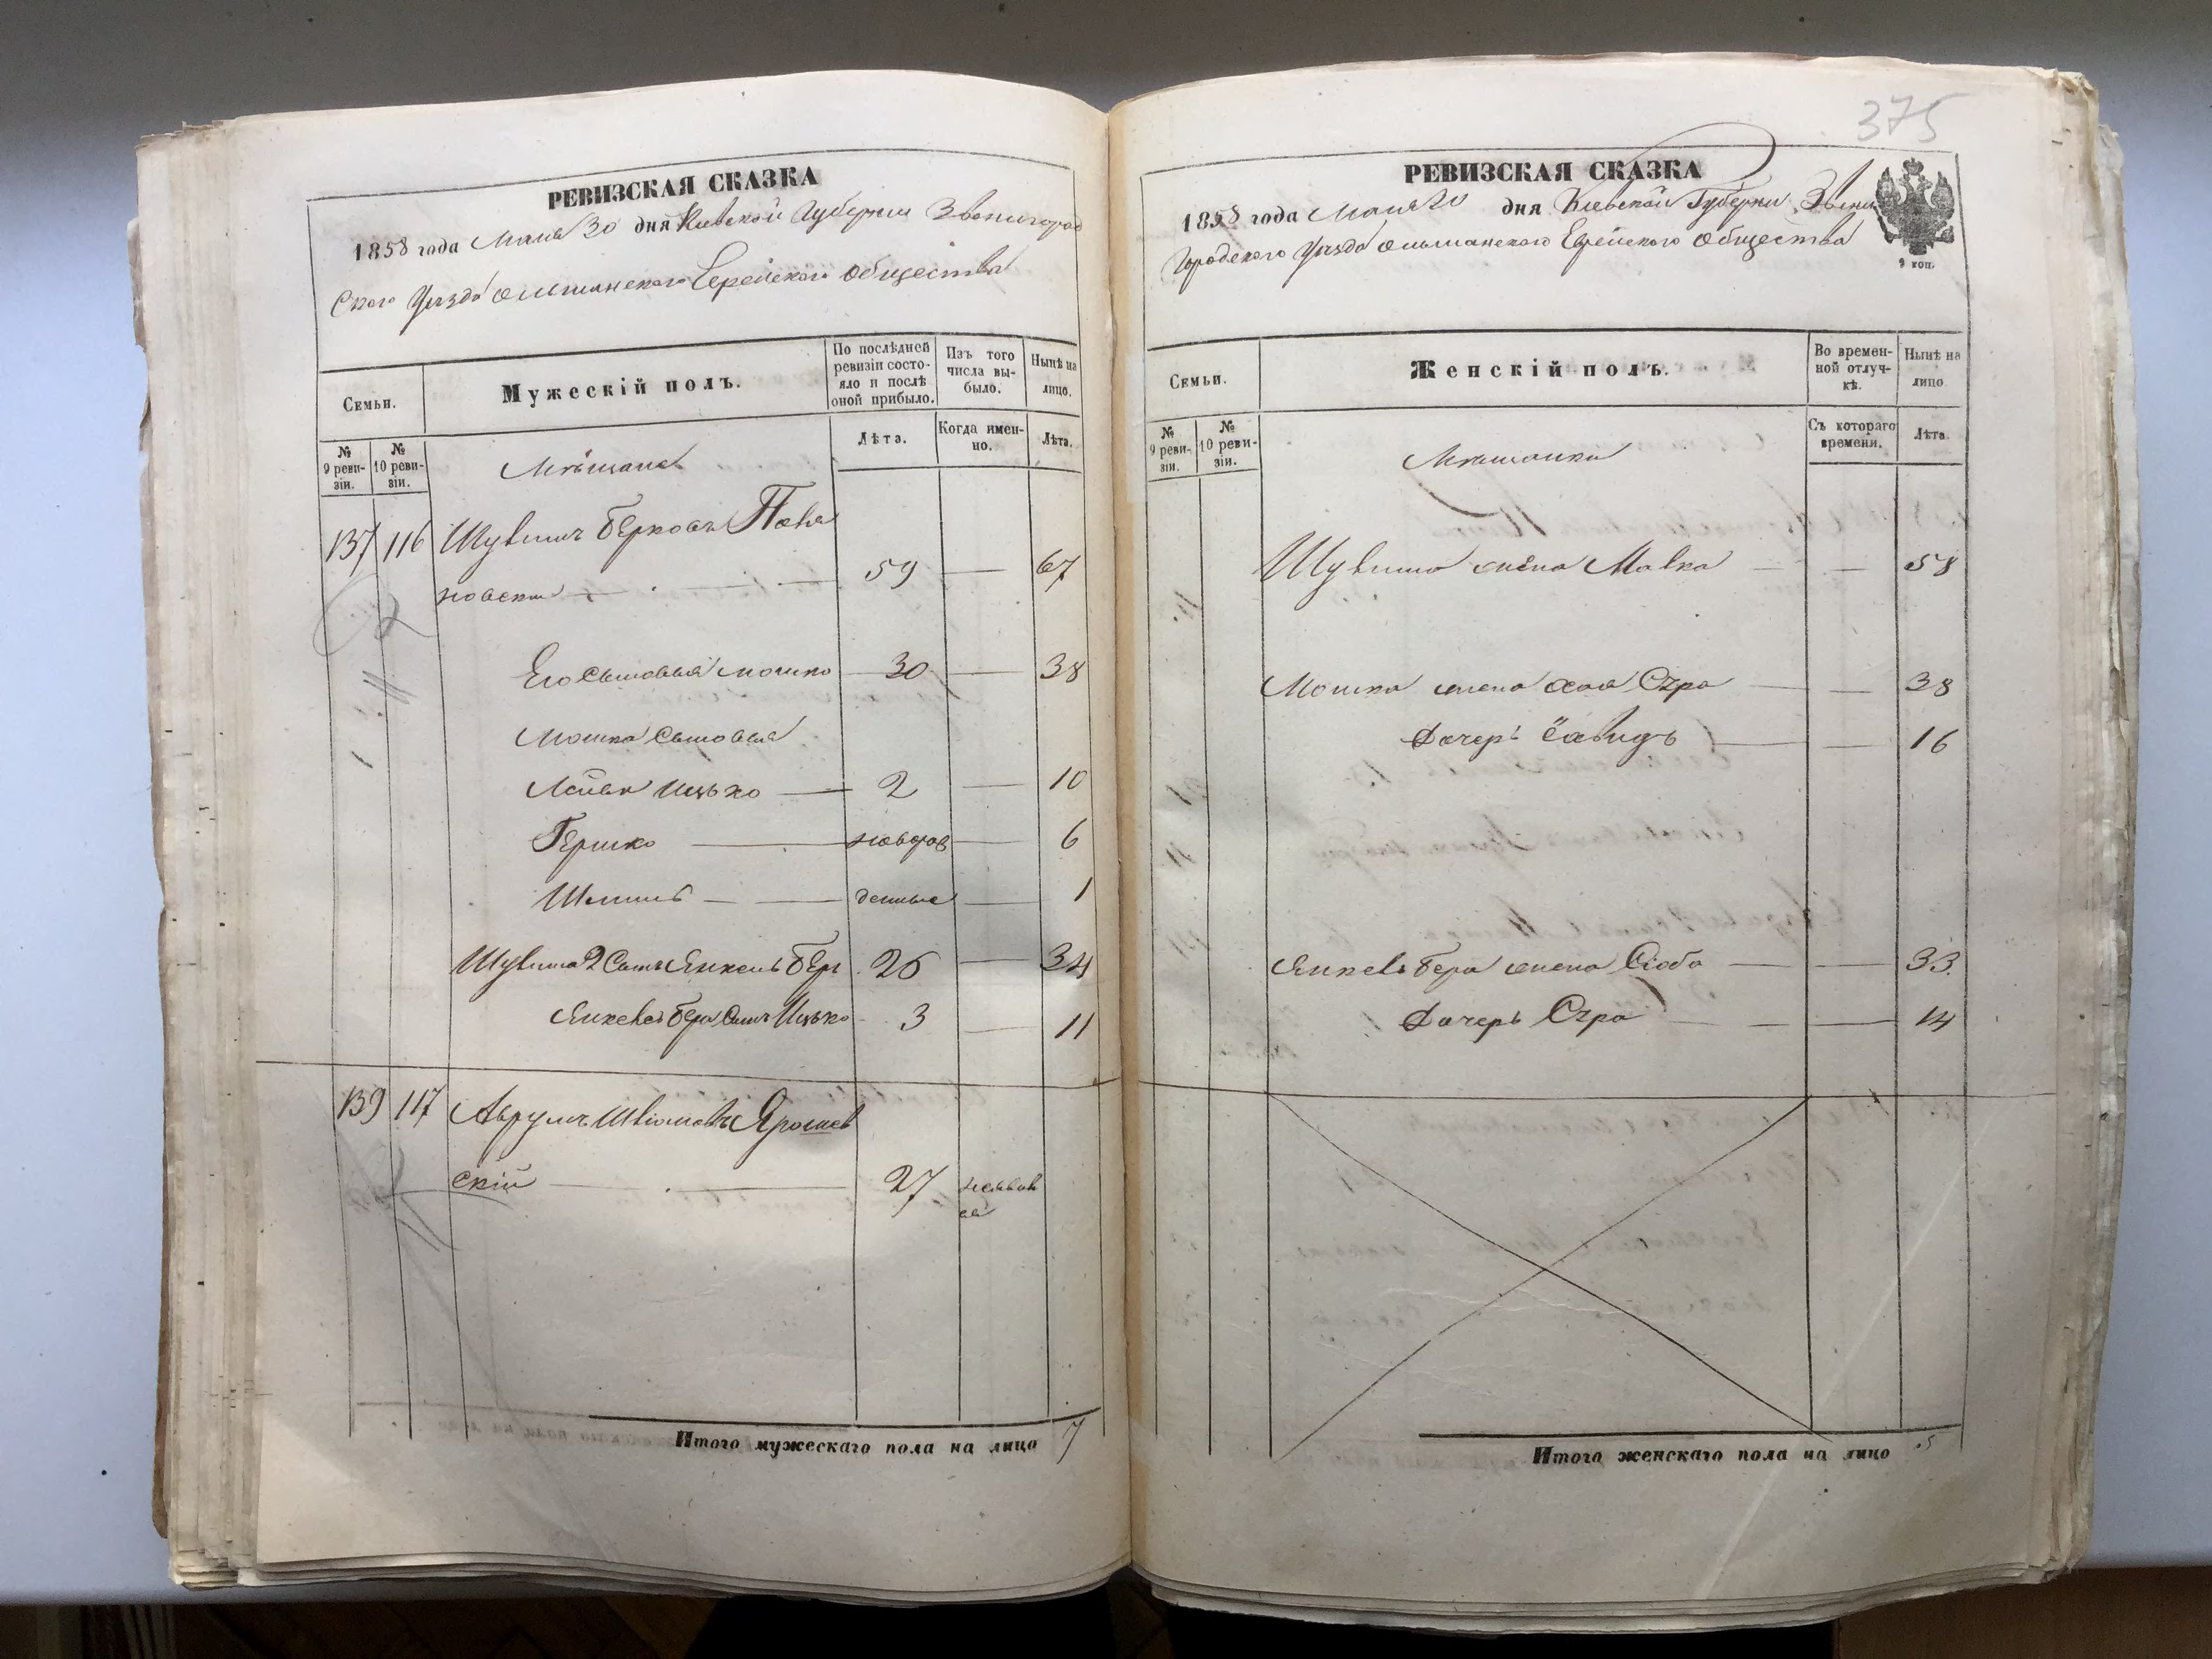 РЕВИЗСКАЯ СКАЗКА
1858 года Маия 30 дня Киевской Губернии Звенигород
Ского Уезда Ольшанского Еврейского Общества
Семьи.
Мужескій полъ.
По послѣдней ревизіи состояло и послѣ оной прибыло.
Изъ того числа выбыло.
Нынѣ на лицо.
№ 9 ревизіи.
№ 10 ревизіи.
Мѣщане
Лѣта.
Когда именно.
Лѣта.
137 116 Шулимъ Берковъ
новский 59 67
Его Сыновья Мошко 30 38
Мошка Сыновья
Лейба Ицько 2 10
Гершко новорож 6
денные 1
Шулима 2 Сынъ Янкель Бер 26 34
Янкель Бера Сынъ Ицько 3 11
139 117 Аврумъ Ярошев
скій 27
Итого мужескаго пола на лицо 7
375
РЕВИЗСКАЯ СКАЗКА
1858 года Маия 30 дня Киевской Губернии Звени
Городского Уезда Ольшанского Еврейского Общества
9 коп.
Семьи.
Женскій полъ.
Во временной отлучкѣ.
Нынѣ на лицо
№ 9 ревизіи.
№ 10 ревизіи.
Мѣщанки
Съ котораго времени.
Лѣта.
Шулима жена Малка 58
Мошка жена Хая Сура 38
Дочерь 16
Янкель Бера жена 33
Дочерь Сура 14
Итого женскаго пола на лицо 5